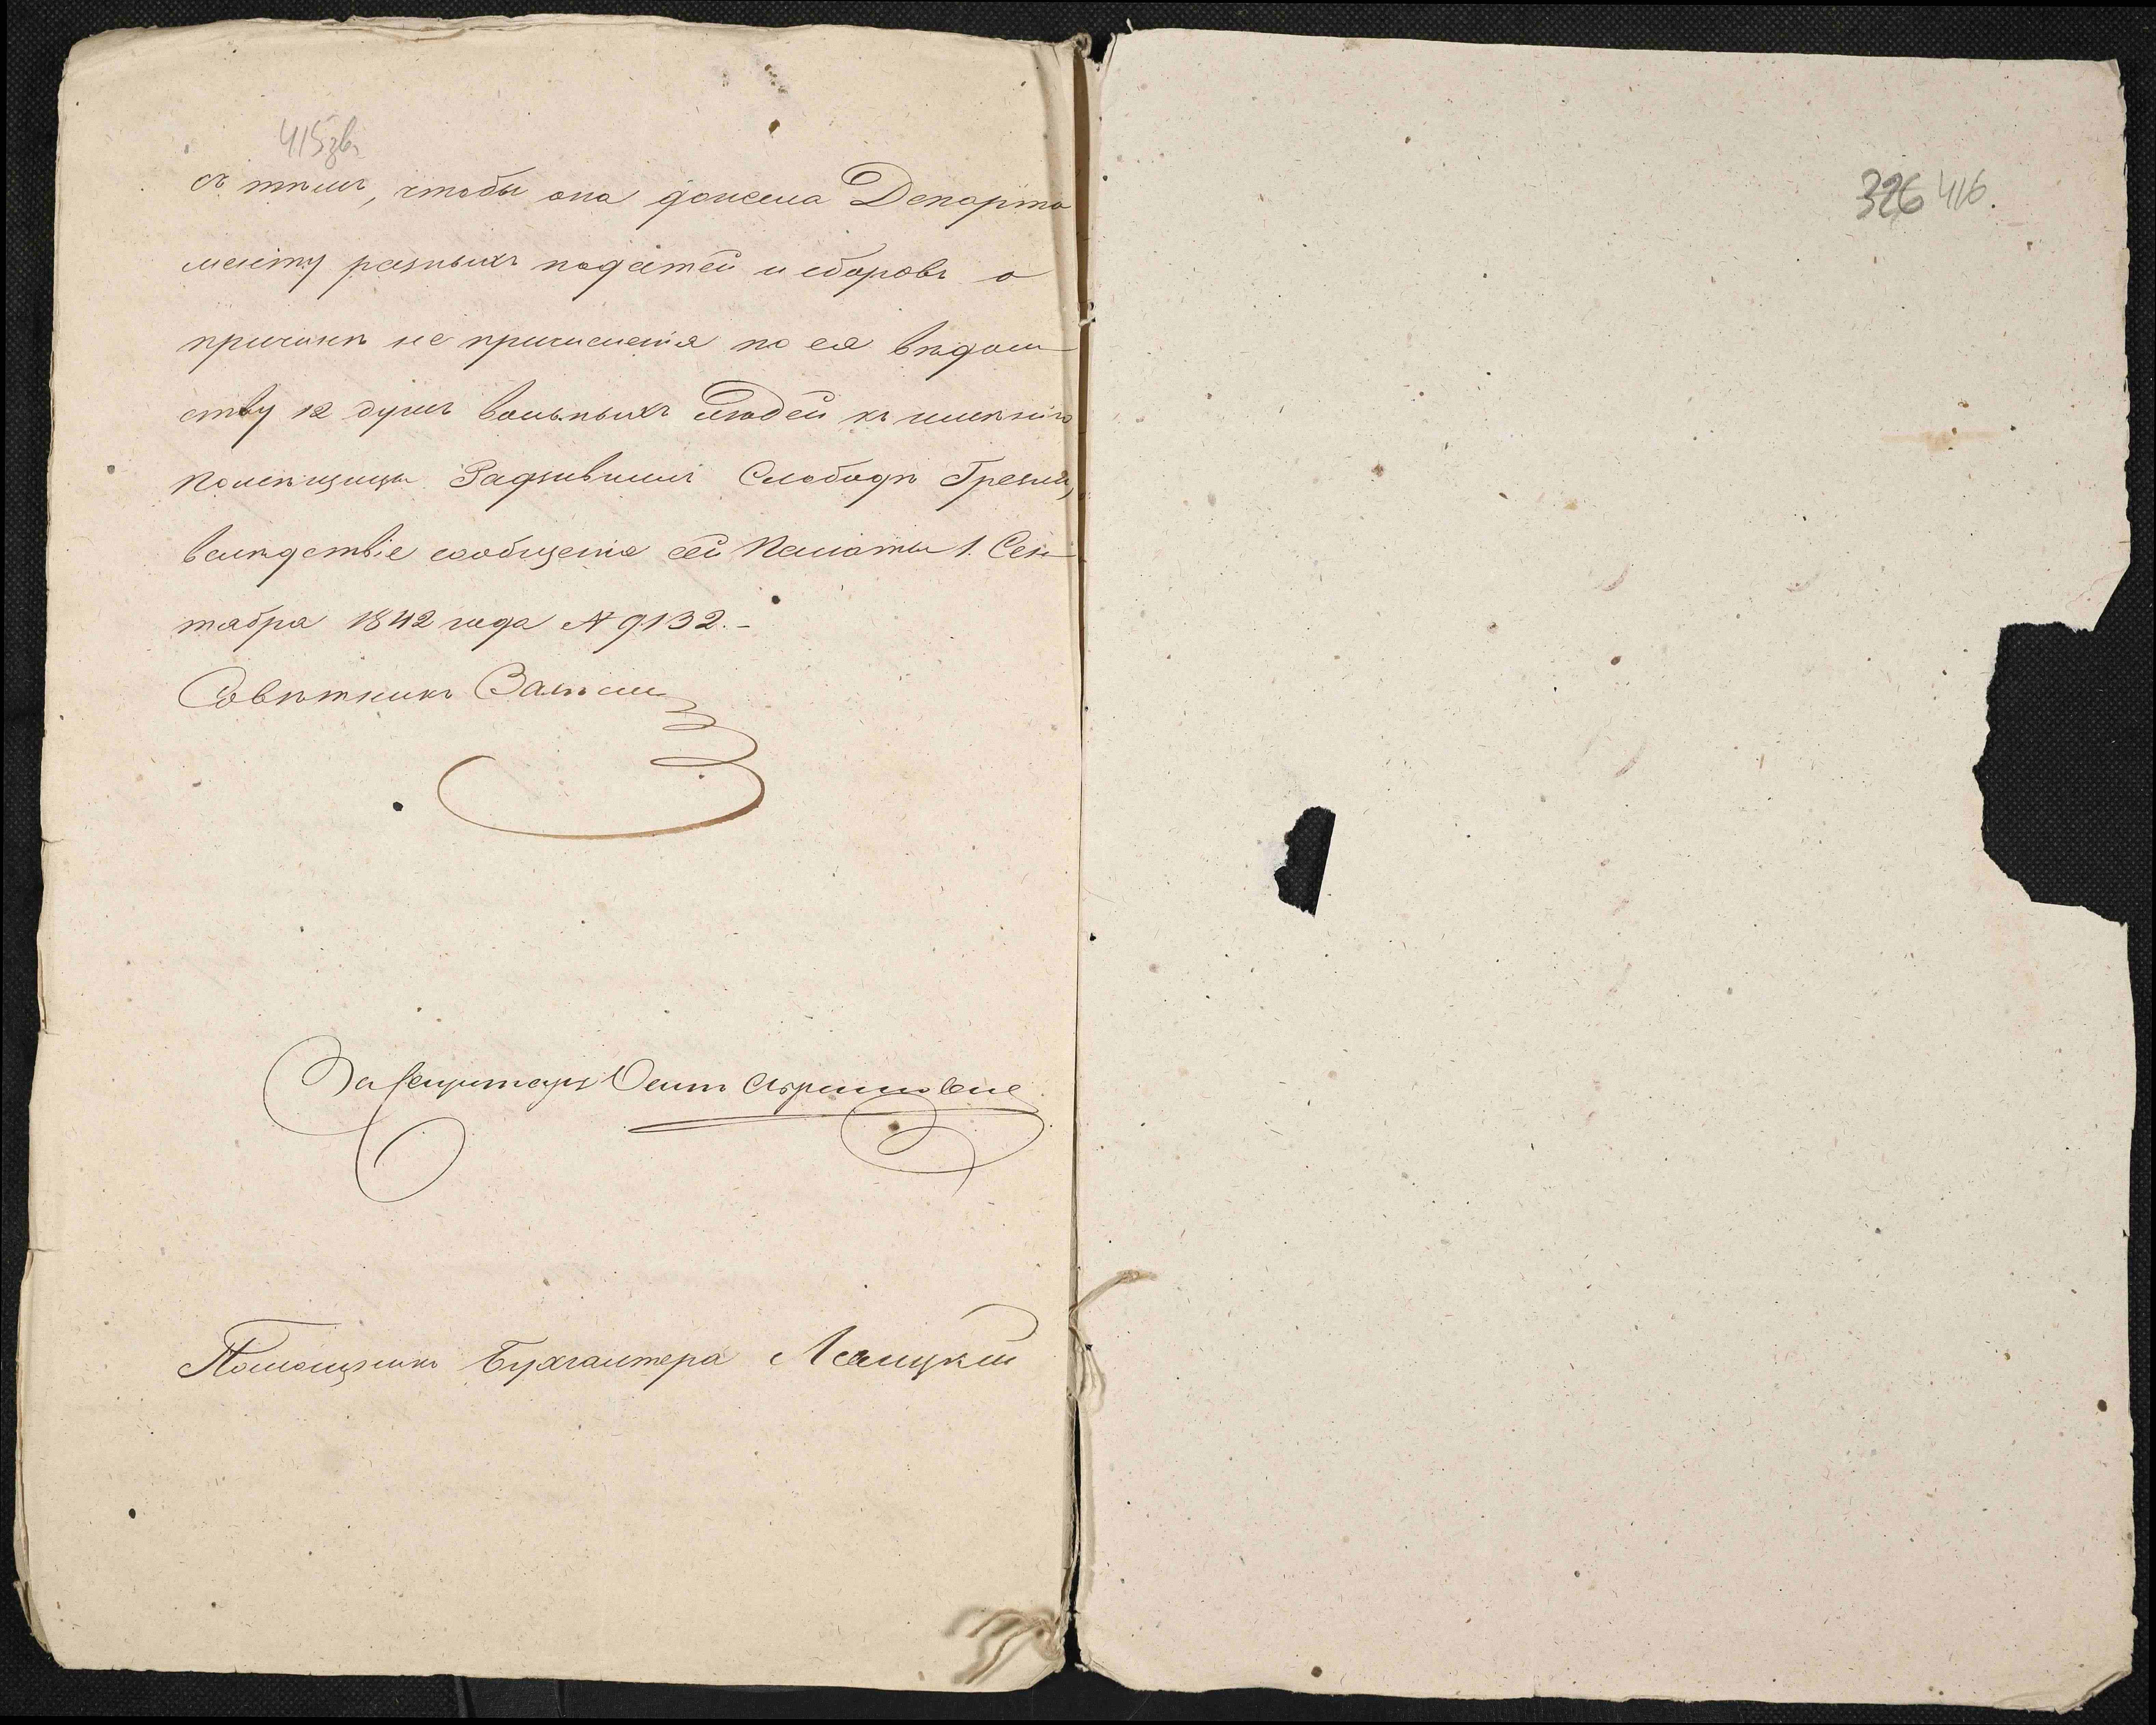 415зв.
съ тѣмъ, чтобы она донесла Департа
менту разныхъ податей и сборовъ о
причинѣ не причисленія по ея вѣдом
ству 12 душъ вольныхъ людей къ имѣнію
помѣщицы Слободѣ
вслѣдствіе сообщенія сей Палаты 1. Сен
тября 1842 года № 9132.-
Совѣтникъ
За Секретаря
Помощникъ Бухгалтера
326 416.